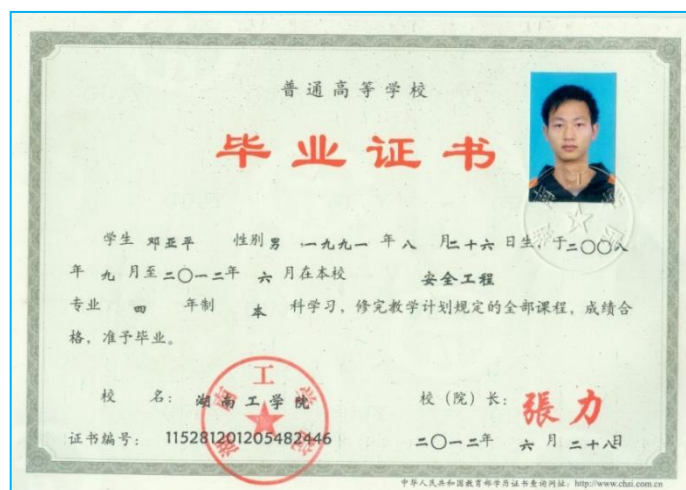 普通高等学校
毕业证书
学生 邓亚平 性别 男 ,一九九一 年 八 月二十六日生,于二〇〇八
年 九 月至二〇一二年 六 月在本校 安全工程
专业 四 年制 本 科学习,修完教学计划规定的全部课程,成绩合
格,准予毕业。
校 名: 湖南工学院
校(院)长: 張力
证书编号: 115281201205482446
二〇一二年 六 月 二十八日
中华人民共和国教育部学历证书查询网址: http://www.chsi.com.cn